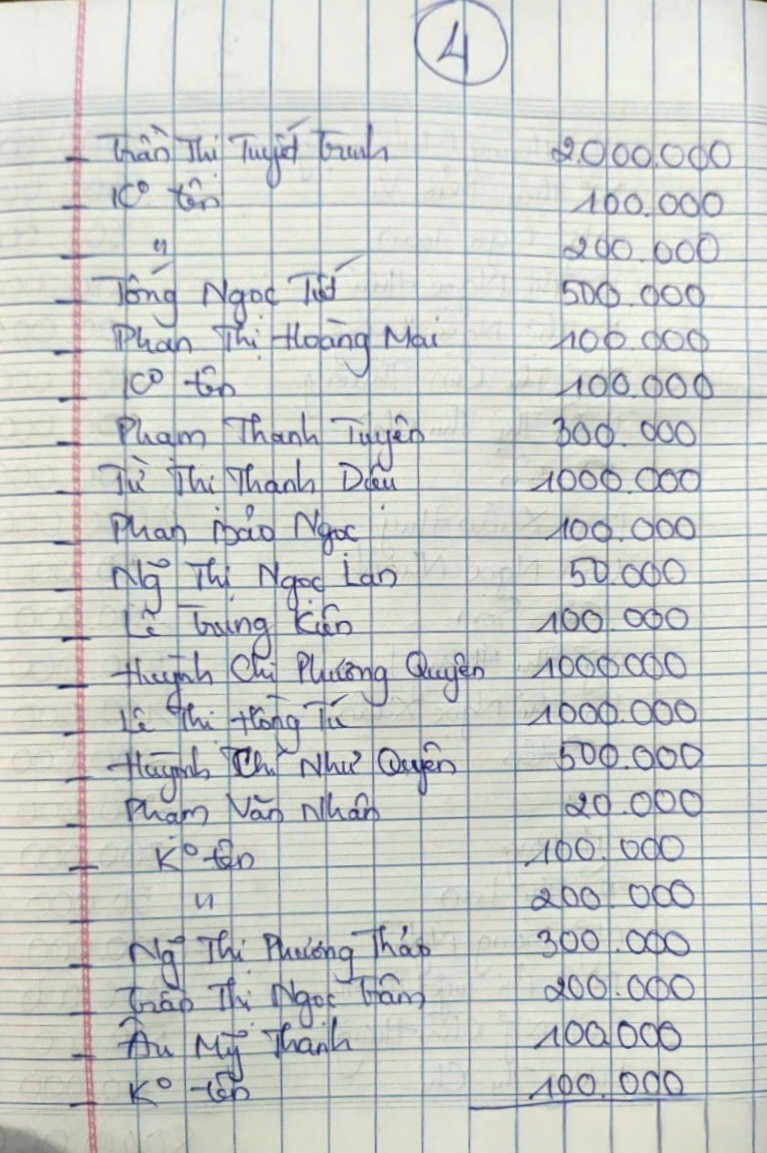 4
- Trần Thị Tuyết Trinh 2.000.000
- Kº tên 100.000
- " 200.000
- Tống Ngọc Tiết 500.000
- Phan Thị Hoàng Mai 100.000
- Kº tên 100.000
- Phạm Thanh Tuyên 300.000
- Từ Thị Thanh Diệu 1000.000
- Phan Bảo Ngọc 100.000
- Ng~ Thị Ngọc Lan 50.000
- Lê Trung Kiên 100.000
- Huỳnh Chi Phương Quyên 1000000
- Lê Thị Hồng Tú 1000.000
- Huỳnh Chi Như Quyên 500.000
- Phạm Văn Nhân 20.000
- Kº tên 100.000
- " 200.000
- Ng~ Thị Phương Thảo 300.000
- Trần Thị Ngọc Trâm 200.000
- Âu Mỹ Thanh 100.000
- Kº tên 100.000